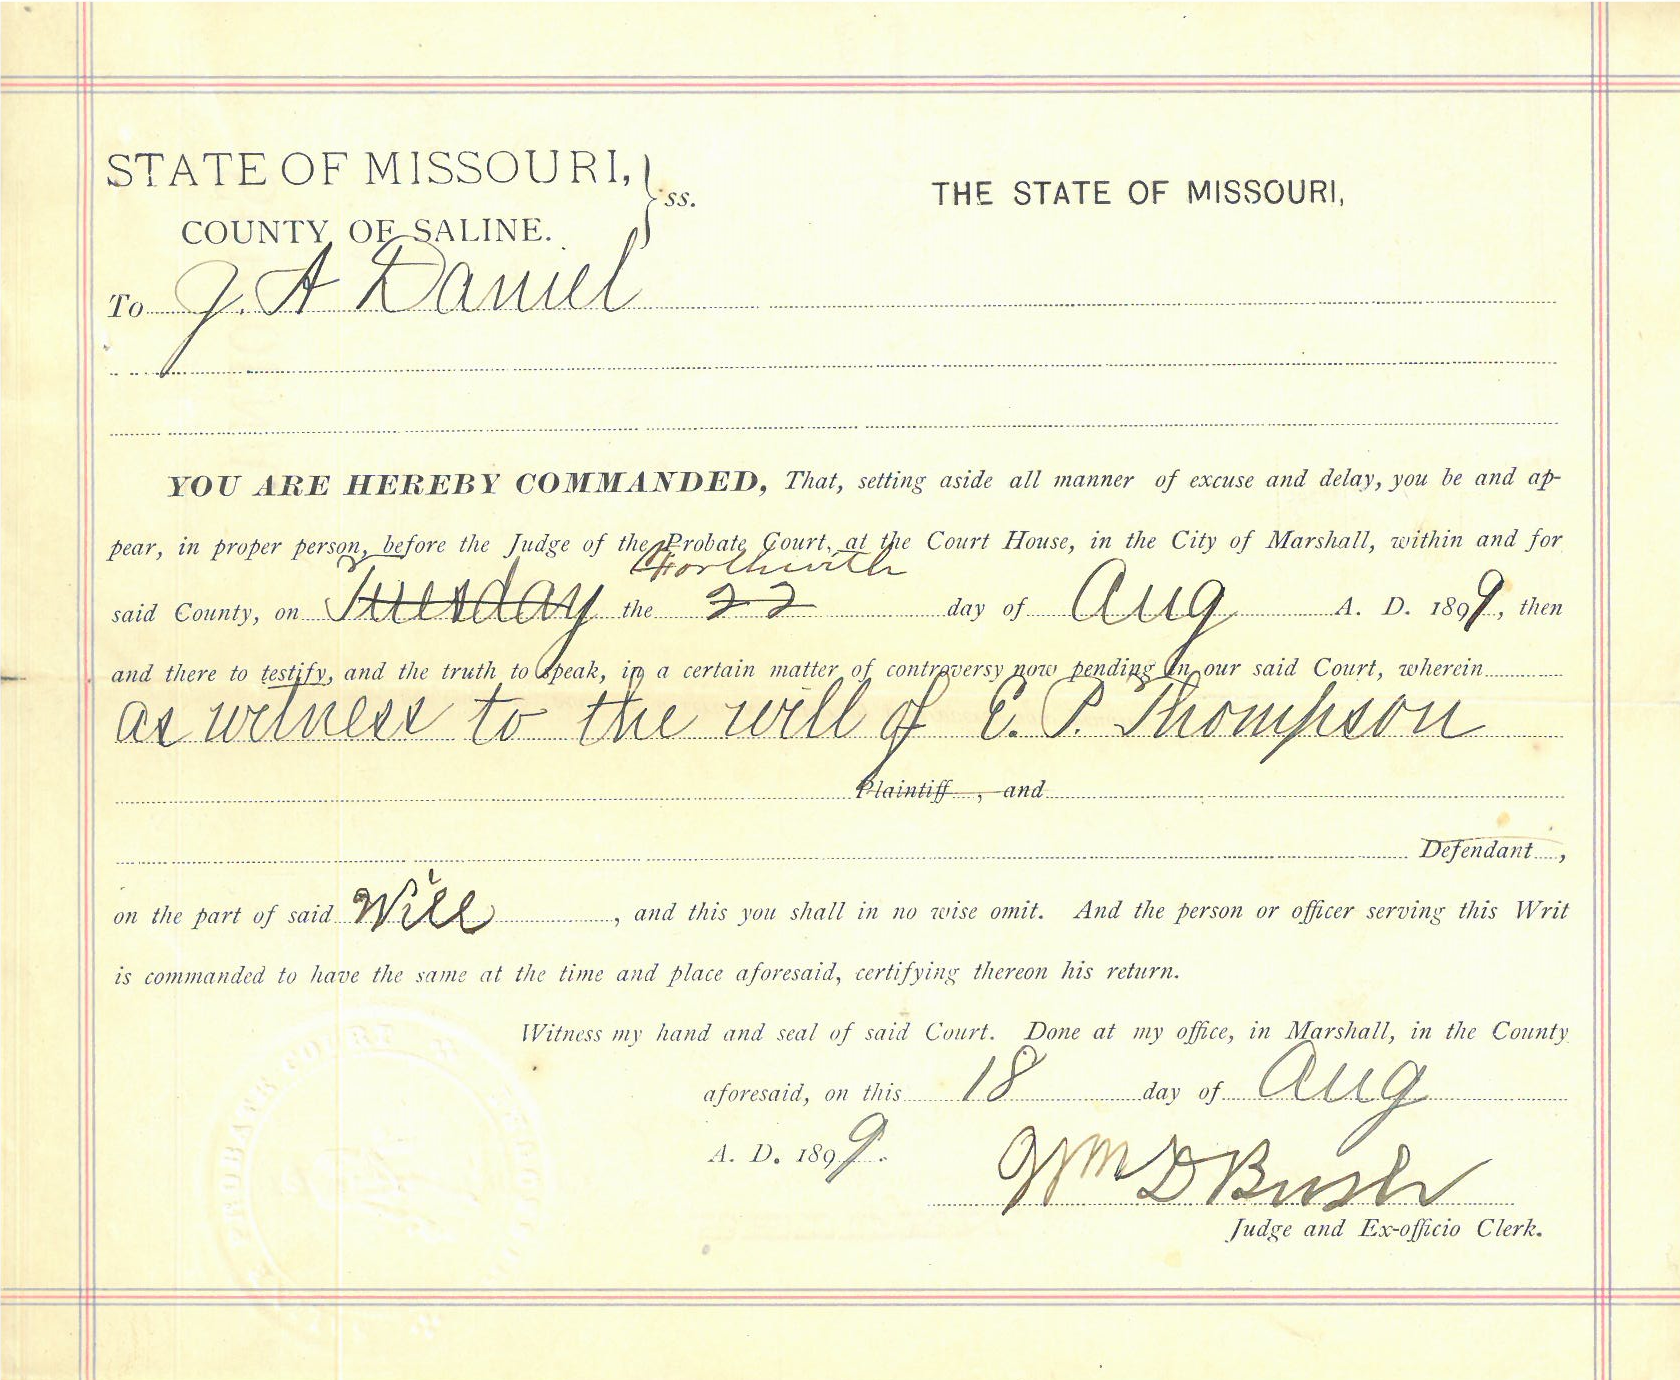 STATE OF MISSOURI, } ss. THE STATE OF MISSOURI,
COUNTY OF SALINE.
To J. A Daniel
YOU ARE HEREBY COMMANDED, That, setting aside all manner of excuse and delay, you be and ap-
pear, in proper person, before the Judge of the Probate Court, at the Court House, in the City of Marshall, within and for
Forthwith
said County, on Tuesday the 22 day of Aug A. D. 1899, then
and there to testify, and the truth to speak, in a certain matter of controversy now pending in our said Court, wherein
as witness to the will of E. P. Thompson
Plaintiff , and
Defendant ,
on the part of said Will , and this you shall in no wise omit. And the person or officer serving this Writ
is commanded to have the same at the time and place aforesaid, certifying thereon his return.
Witness my hand and seal of said Court. Done at my office, in Marshall, in the County
aforesaid, on this 18 day of Aug
A. D. 1899.
Wm D Bush
Judge and Ex-officio Clerk.
PROBATE COURT